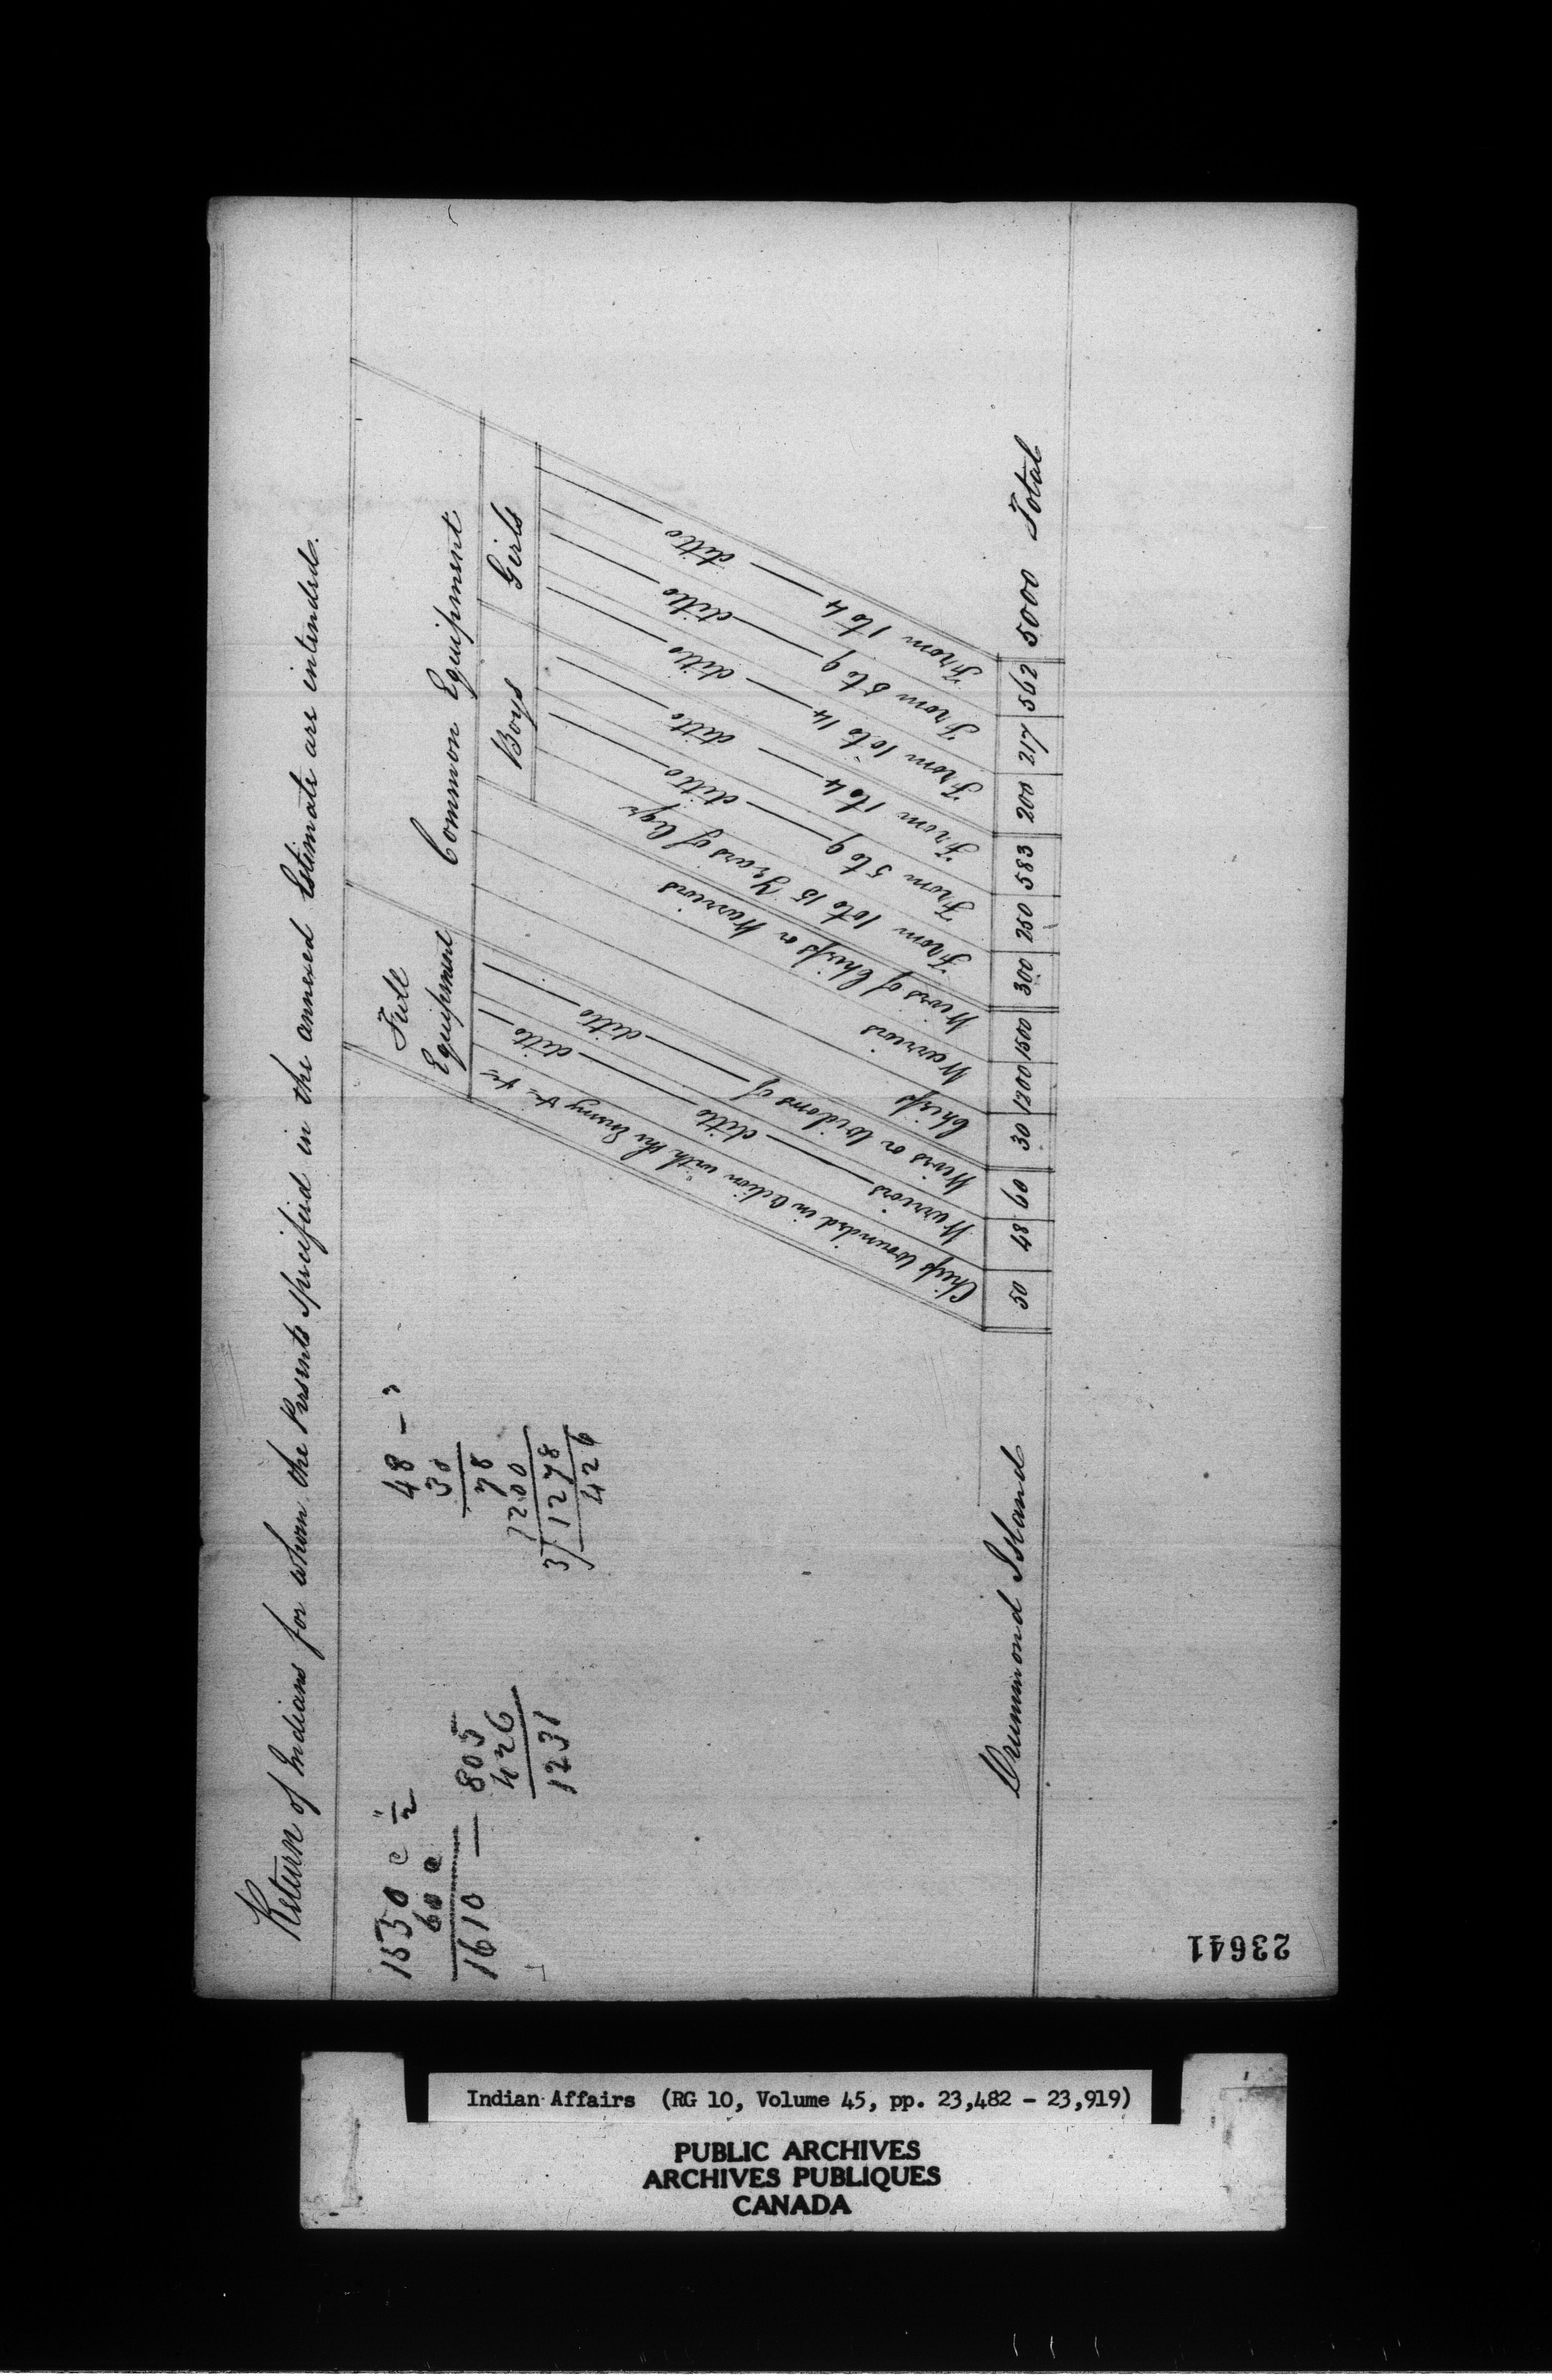 Return of Indians for whom the Presents specified in the annexed Estimate are intended.
Full Equipment
Common Equipment
Boys
Girls
Chiefs Wounded in Action with the Enemy &c &c
Warriors — ditto — ditto
Wives or Widows of — ditto
Chiefs
Warriors
Wives of Chiefs or Warriors
From 10 to 15 Years of Age
From 5 to 9 — ditto
From 1 to 4 — ditto
From 10 to 14 — ditto
From 5 to 9 — ditto
From 1 to 4 — ditto
Drummond Island 50 48 60 30 1200 1500 300 250 583 200 217 562 5000 Total
1550 c 1/2
60 c
1610 — 805
426
1231
48 — 3
30
78
1200
3/1278
426
23641
Indian Affairs (RG 10, Volume 45, pp. 23,482 - 23,919)
PUBLIC ARCHIVES
ARCHIVES PUBLIQUES
CANADA